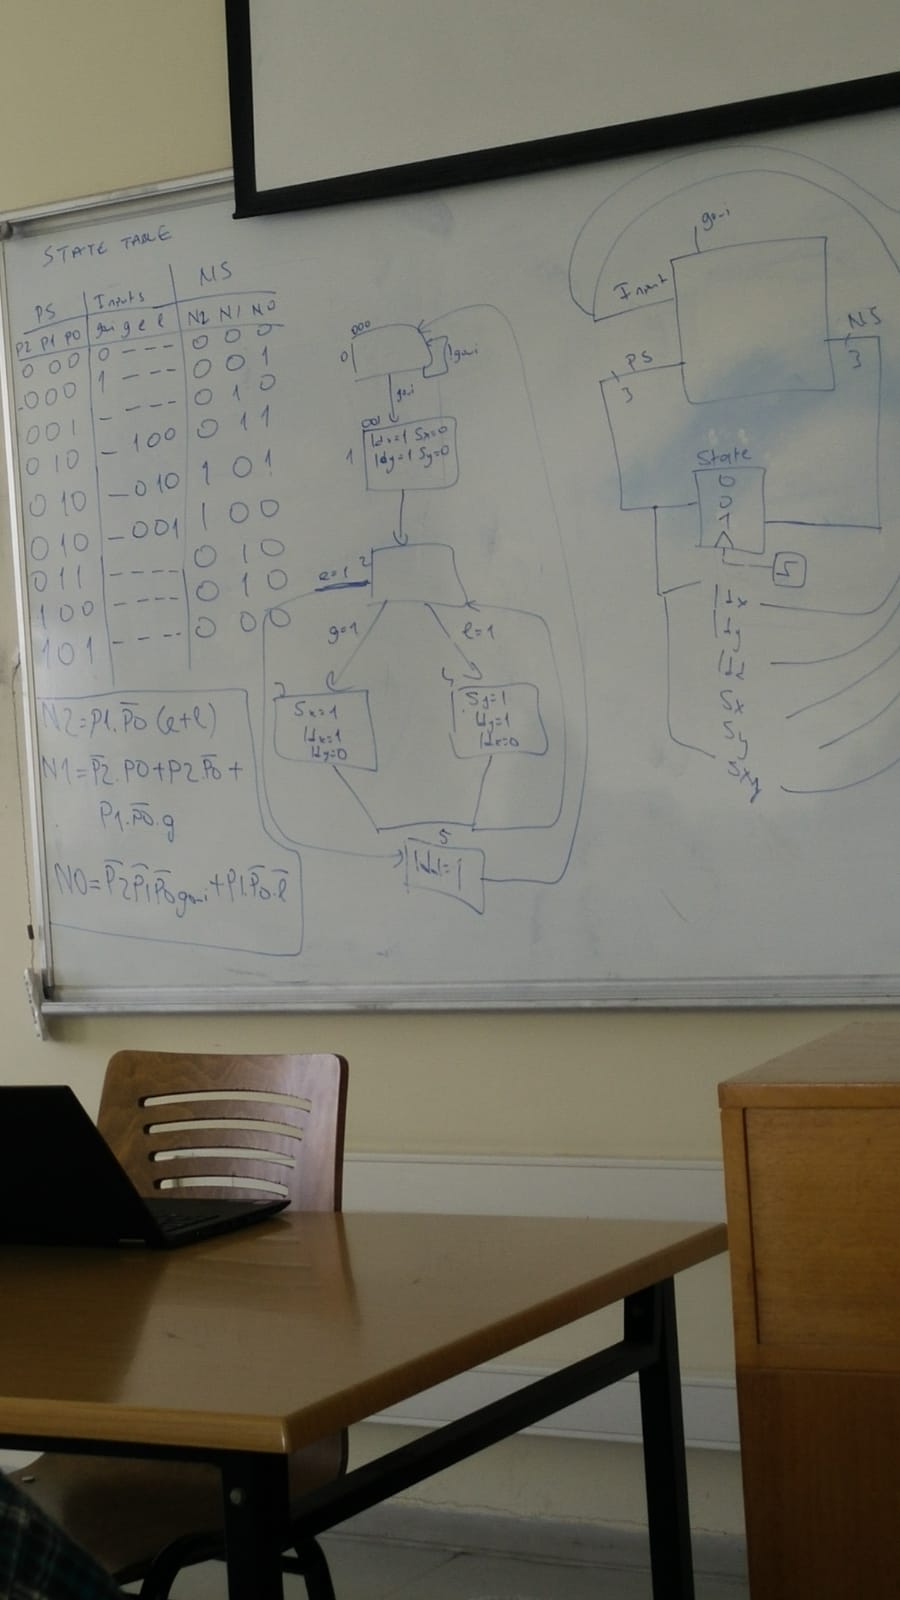 STATE TABLE
PS Inputs NS
P2 P1 P0 goi g e l N2 N1 N0
0 0 0 0 - - - 0 0 0
0 0 0 1 - - - 0 0 1
0 0 1 - - - - 0 1 0
0 1 0 - 1 0 0 0 1 1
0 1 0 - 0 1 0 1 0 1
0 1 0 - 0 0 1 1 0 0
0 1 1 - - - - 0 1 0
1 0 0 - - - - 0 1 0
1 0 1 - - - - 0 0 0
N2 = P1.P̅0 (e+l)
N1 = P̅2.P0 + P2.P̅0 +
P1.P̅0.g
N0 = P̅2 P̅1 P̅0 goi + P1.P̅0.l̅
000
0
goi
goi
001
1
ldx=1 Sx=0
ldy=1 Sy=0
e=1 2
g=1 l=1
3
Sx=1
ldx=1
ldy=0
4
Sy=1
ldy=1
ldx=0
5
ldd=1
goi
Input
NS
3
PS
3
State
0
0
1
ldx
ldy
Sx
Sy
Sxy